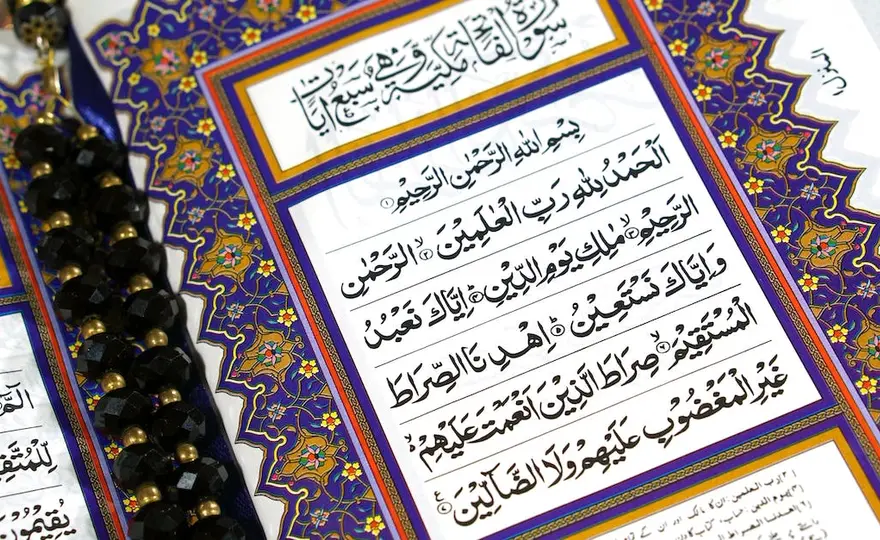 سُوْرَةُ الْفَاتِحَةِ مَكِّيَّةٌ وَّهِيَ سَبْعُ اٰيَاتٍ
بِسْمِ اللهِ الرَّحْمٰنِ الرَّحِيْمِ ۝۱
اَلْحَمْدُ لِلّٰهِ رَبِّ الْعٰلَمِيْنَ ۙ۝۲ الرَّحْمٰنِ
الرَّحِيْمِ ۙ۝۳ مٰلِكِ يَوْمِ الدِّيْنِ ۝۴ اِيَّاكَ نَعْبُدُ
وَاِيَّاكَ نَسْتَعِيْنُ ۝۵ اِهْدِنَا الصِّرَاطَ
الْمُسْتَقِيْمَ ۙ۝۶ صِرَاطَ الَّذِيْنَ اَنْعَمْتَ عَلَيْهِمْ ۙ
غَيْرِ الْمَغْضُوْبِ عَلَيْهِمْ وَلَا الضَّآلِّيْنَ ۝۷